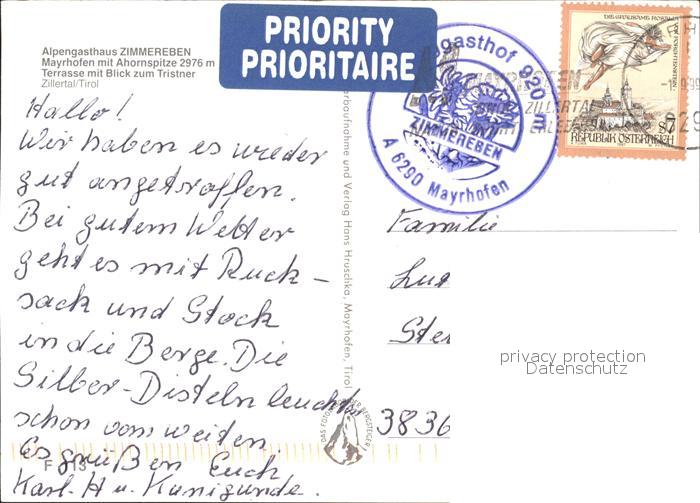 Alpengasthaus ZIMMEREBEN
Mayrhofen mit Ahornspitze 2976 m
Terrasse mit Blick zum Tristner
Zillertal/Tirol
PRIORITY
PRIORITAIRE
Hallo!
Wir haben es wieder
gut angetroffen.
Bei gutem Wetter
geht es mit Ruck-
sack und Stock
in die Berge. Die
Silber-Disteln leuchten
schon von weiten.
Es grüßen Euch
Karl-H u. Kunigunde.
F 13
und Verlag Hans Hruschka, Mayrhofen, Tirol
gasthof 950 m
ZIMMEREBEN
A 6290 Mayrhofen
DIE GRAUSAME ROSALIA
7
REPUBLIK ÖSTERREICH
Familie
Lu
Ste
3836
privacy protection
Datenschutz